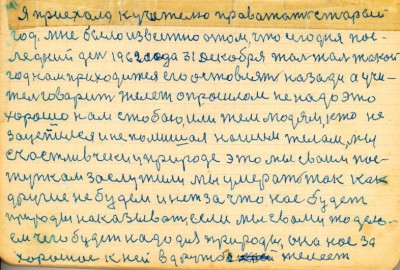 Я приехал к учителю праважать старый
год. мне было известно о том, что сегодня пос-
ледний ден 1962 года 31 декабря жал жал такой
год нам приходится его оставлят назади а учи-
тел говорит жалет о прошлом не надо это
хорошо нам с тобою, или тем людям, кто не
зацепился и не помишал нашим телам, мы
счастливчеки у природе это мы своим пос-
тупкам заслужили мы умерать так как
другие не будем и нет за что нас будет
природы наказыват, если мы своли тоделю-
ем чего будет надо для природы, она нас за
хорошое к ней в друтое жалеет